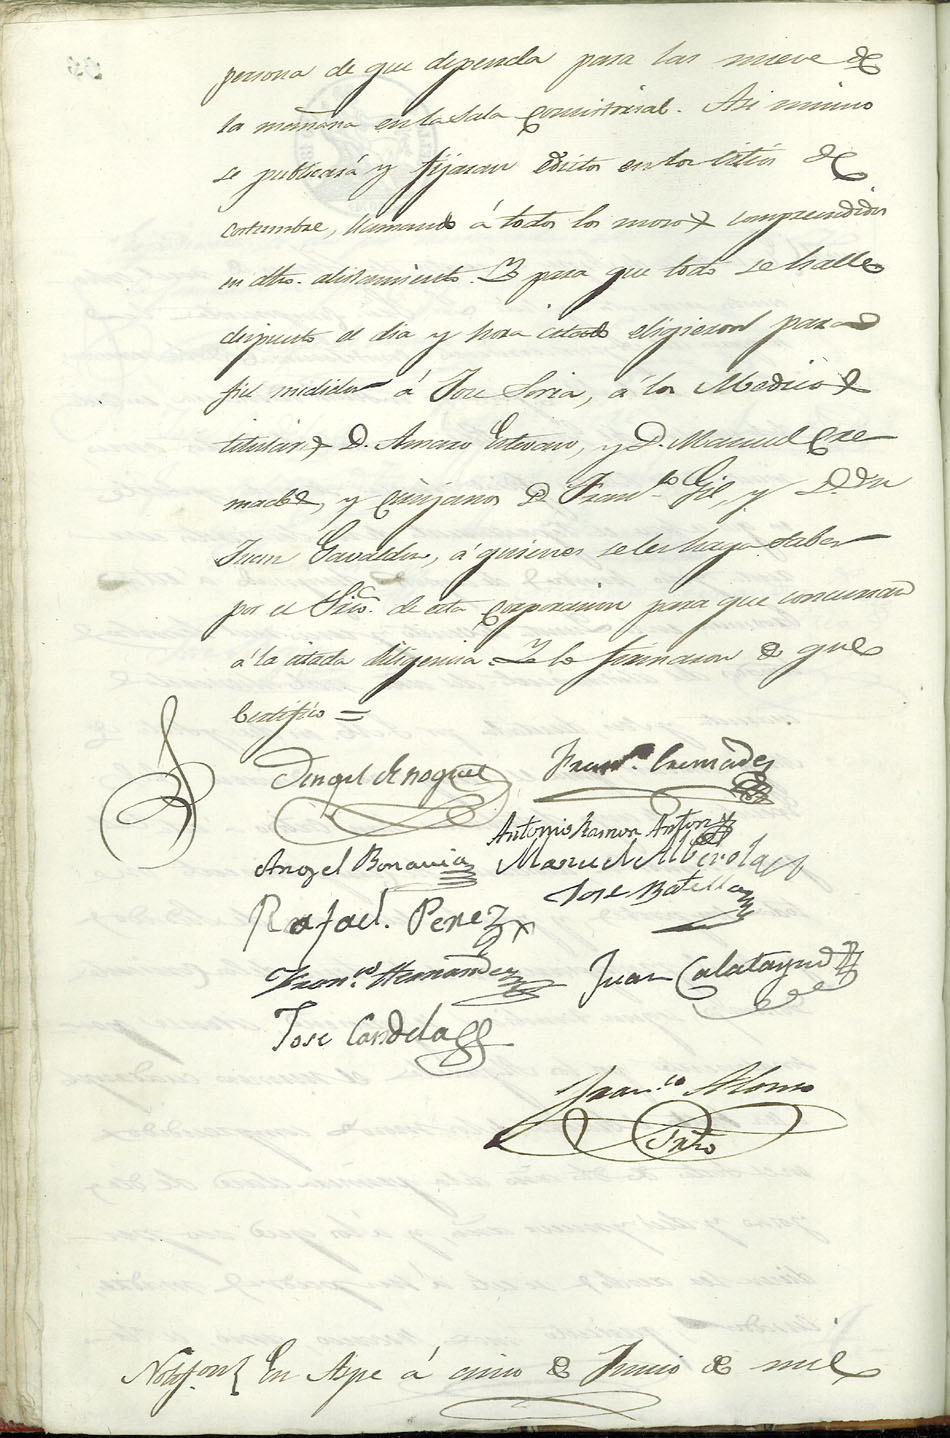 persona de que dependa para las nueve de
la mañana en la Sala Consistorial. Asi mismo
se publicará y fijaran edictos en los sitios de
costumbre, llamando á todos los mozos comprendidos
en dho. alistamiento. Y para que todo se halle
dispuesto el dia y hora citado eligieron para
fiel medidor á Jose Soria, á los Medicos
titulares D. Amaro Estevan, y D. Manuel Cre-
mades, y Cirujanos D. Franco. Gil, y D.
Juan Gavaldon, á quienes se les haga saber
por el Srio. de esta Corporacion para que concurran
á la citada diligencia. Y lo firmaron de que
Certifico =
Angel
Franco. Cremades
Antonio Ramon Anton
Angel Bonavia
Manuel Alberola
Jose Batella
Rafael Perez
Franco. Hernandez
Juan Calatayud
Jose Candela
Franco. Alonso
Srio
Notifon. En Aspe á cinco de Junio de mil